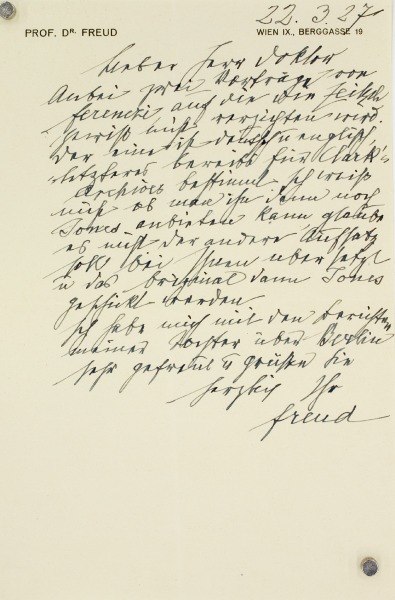 22. 3. 27
PROF. DR. FREUD
WIEN IX., BERGGASSE 19
Lieber Herr Doktor
Anbei zwei Vorträge von
Ferenczi auf die die Zeitsch
gewiß nicht verzichten wird.
Der eine ist deutsch u englisch
letzteres bereits für Clark's
Archives bestimmt. Ich weiß
nicht ob man ihn dann noch
Jones anbieten kann glaube
es nicht der andere Aufsatz
soll bei Ihnen übersetzt
u das Original dann Jones
geschickt werden
Ich habe mich mit den Berichten
meiner Tochter über Berlin
sehr gefreut u grüße Sie
herzlich Ihr
Freud